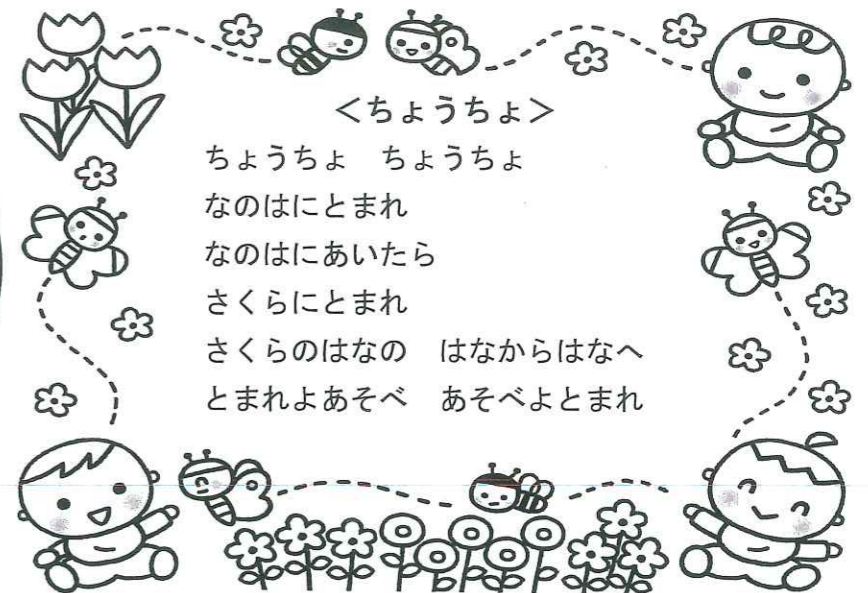 <ちょうちょ>
ちょうちょ　ちょうちょ
なのはにとまれ
なのはにあいたら
さくらにとまれ
さくらのはなの　はなからはなへ
とまれよあそべ　あそべよとまれ